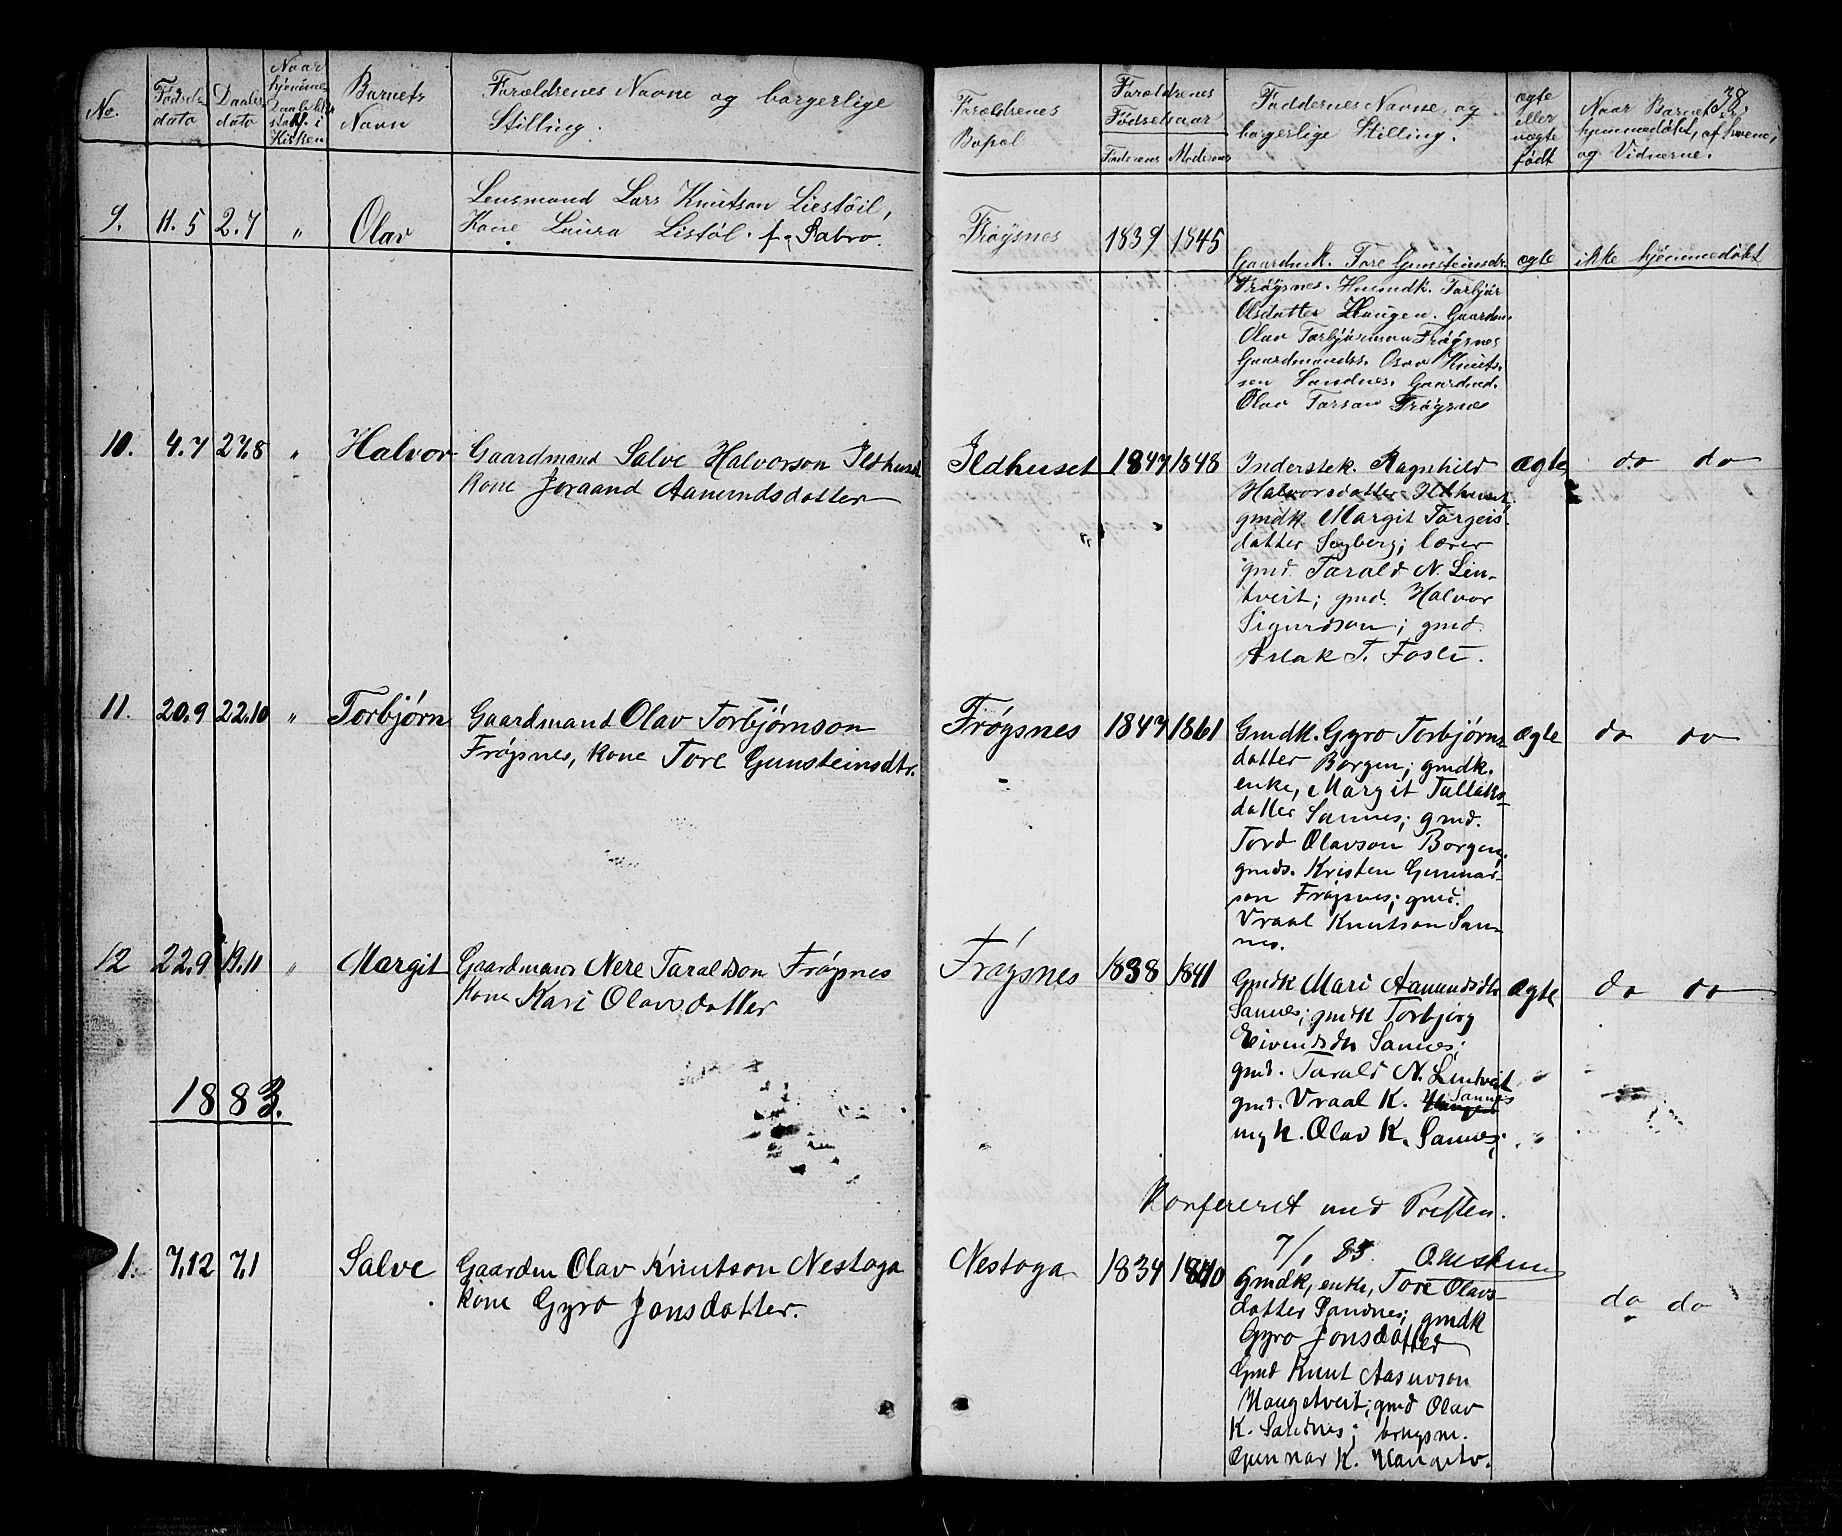 38.
No.
Fødsels-
dato
Daabs
dato
Naar
hjemme-
Daab
stadf. i
Kirken
Barnets
Navn
Forældrenes Navne og borgerlige
Stilling.
Forældrenes
Bopæl
Forældrenes
Fødselsaar
Faderens Moderens
Faddernes Navne og
borgerlige Stilling.
ægte
eller
uægte
født
Naar Barnet er
hjemmedøbt, af hvem,
og Vidnerne.
9. 11.5 2.7 " Olav
Lensmand Lars Knutson Liestøil,
Kone Laura Listøl. f.
Frøysnes 1839 1845
Gaardmk. Tore Gunsteinsdr.
Frøysnes. Husmdk. Torbjør
Olsdatter Haugen. Gaardm.
Olav Torbjørnson Frøysnes
Gaardmands. Knuts-
sen Sandnes. Gaardmd.
Olav Tarson Frøysnes
ægte ikke hjemmedøbt
10. 4.7 27.8 " Halvor
Gaardmand Salve Halvorson Ildhuset
Kone Joraand Aanundsdatter
Ildhuset 1847 1848
Inderstek. Ragnhild
Halvorsdatter Ildhuset,
gmdk. Margit Torgeis-
datter; lærer
gmd. Tarald N. Lin-
tveit; gmd. Halvor
Sigurdson; gmd.
Aslak T.
ægte do do
11. 20.9 22.10 " Torbjørn
Gaardmand Olav Torbjørnson
Frøysnes, kone Tore Gunsteinsdtr.
Frøysnes 1847 1861
Gmdk. Gyro Torbjørns-
datter Borgen; gmdk.
enke, Margit Tallaks-
datter Sannes; gmd.
Tord Olavson Borgen;
gmds. Kristen Gunnar-
son Frøysnes; gmd.
Vraal Knutson San-
nes.
ægte do do
12 22.9 19.11 " Margit
Gaardmand Nere Taraldson Frøysnes
Kone Kari Olavsdatter
Frøysnes 1838 1841
Gmdk Mari Aanundsdtr
Sannes; gmdk Torbjørg
Eivindsdtr Sannes;
gmd. Tarald N. Lintveit
gmd. Vraal K. Sannes
ungk. Olav K. Sannes;
ægte do do
1883.
Konfereret med Pristen.
7/1 83.
1. 7.12 7.1 Salve
Gaardm Olav Knutson Nestoga
kone Gyro Jonsdatter.
Nestoga 1834 1840
Gmdk, enke, Tore Olavs-
datter Sandnes; gmdk
Gyro Jonsdatter
Gmd Knut Aasuvson
Haugetveit; gmd Olav
K. Sandnes; brugsm.
Gunnar K. Haugetv.
do do